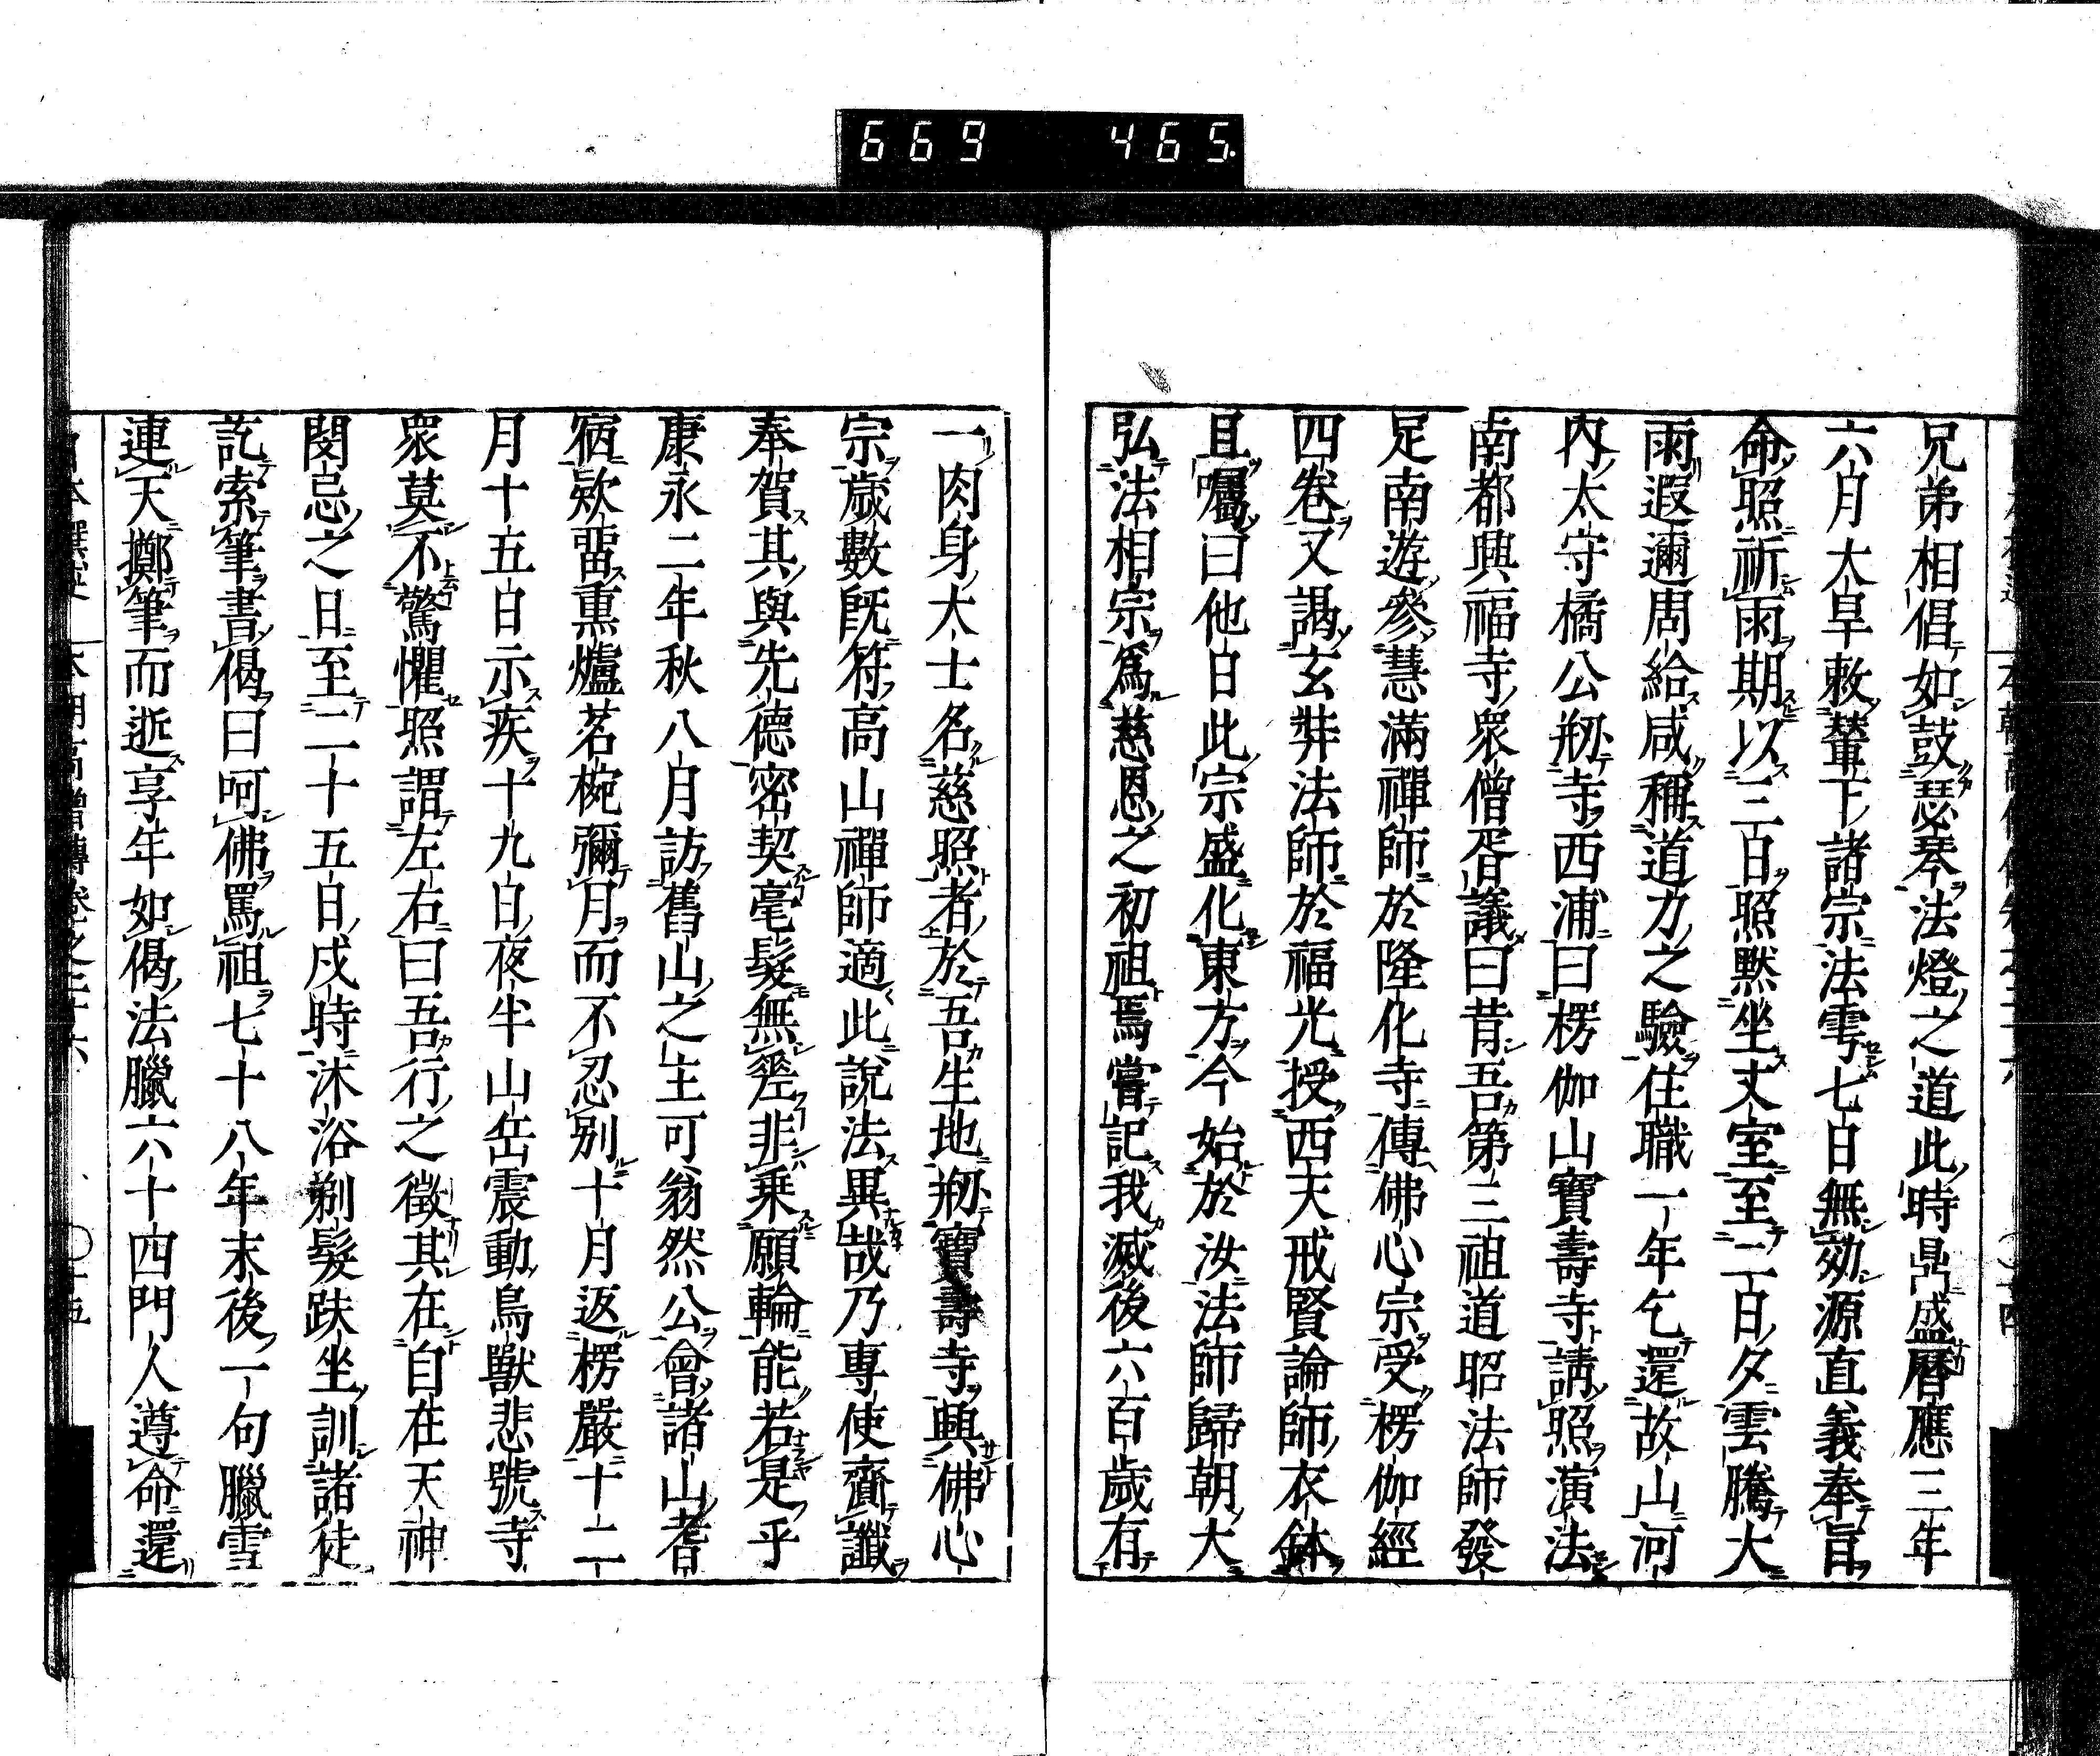 669 465
兄弟相倡如鼓瑟琴法燈之道此時鼎盛曆應三年
六月大旱敕輦下諸宗法雩七日無効源直義奉旨
命照祈雨期以三日照默坐丈室至二日夕雲騰大
雨遐邇周給咸稱道力之驗住職一年乞還故山河
內太守橘公剏寺西浦曰楞伽山寶壽寺請照演法
南都興福寺衆僧胥議曰昔吾第三祖道昭法師發
足南遊參慧滿禪師於隆化寺傳佛心宗受楞伽經
四卷又謁玄奘法師於福光授西天戒賢論師衣鉢
且囑曰他日此宗盛化東方今始於汝法師歸朝大
弘法相宗爲慈恩之初祖焉嘗記我滅後六百歲有
一肉身大士名慈照者於吾生地剏寶壽寺興佛心
宗歲數既符高山禪師適此說法異哉乃專使齎讖
奉賀其與先德密契毫髮無差非乘願輪能若是乎
康永二年秋八月訪舊山之主可翁然公會諸山耆
宿欵畱熏爐茗椀彌月而不忍別十月返楞嚴十二
月十五日示疾十九日夜半山岳震動鳥獸悲號寺
衆莫不驚懼照謂左右曰吾行之徵其在自在天神
閔忌之日至二十五日戌時沐浴剃髮趺坐訓諸徒
訖索筆書偈曰呵佛罵祖七十八年末後一句臘雪
連天擲筆而逝享年如偈法臘六十四門人遵命還
本朝高僧傳卷之二十六